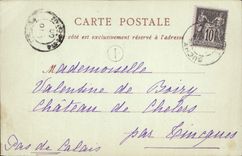 CARTE POSTALE
Ce côté est exclusivement réservé à l'adresse
10
Mademoiselle
Valentine de Boiry
Château de Chelers
par Tincques
Pas de Calais